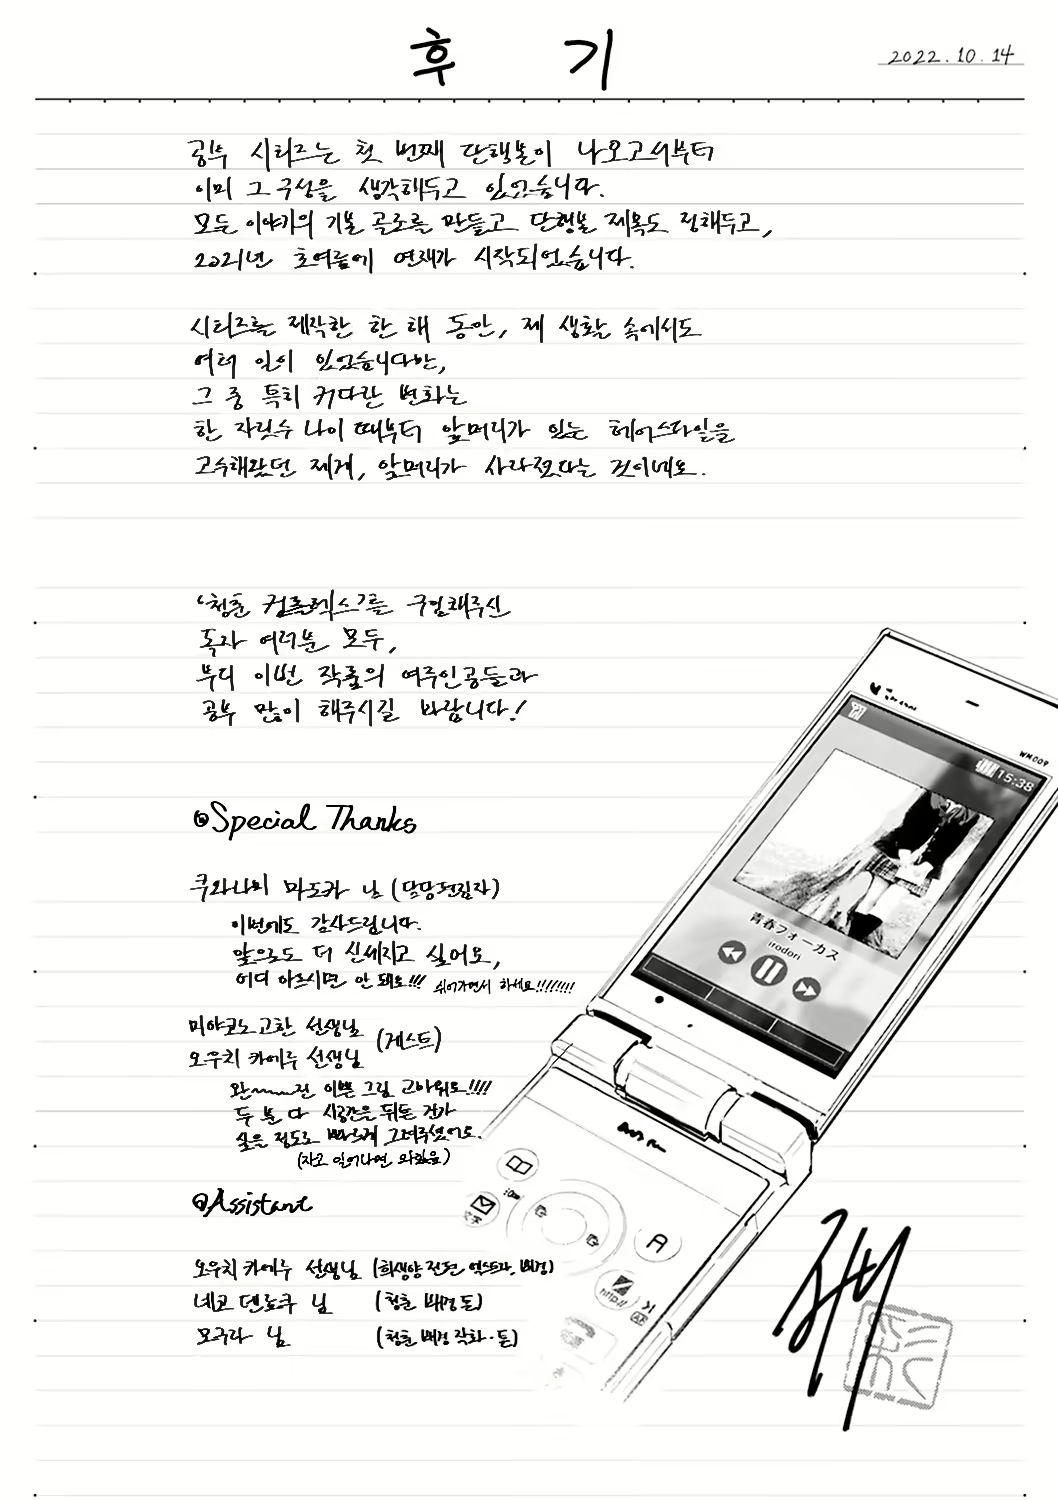 후 기
2022.10.14
공부 시리즈는 첫 번째 단행본이 나오고서부터
이미 그 구상을 생각해두고 있었습니다.
모든 이야기의 기본 골조를 만들고 단행본 제목도 정해두고,
2021년 초여름에 연재가 시작되었습니다.
시리즈를 제작한 한 해 동안, 제 생활 속에서도
여러 일이 있었습니다만,
그 중 특히 커다란 변화는
한 자릿수 나이 때부터 앞머리가 있는 헤어스타일을
고수해왔던 제게, 앞머리가 사라졌다는 것이네요.
'청춘 컴플렉스'를 구입해주신
독자 여러분 모두,
부디 이번 작품의 여주인공들과
공부 많이 해주시길 바랍니다!
Special Thanks
쿠와나미 마도카 님 (담당편집자)
이번에도 감사드립니다.
앞으로도 더 신세지고 싶어요,
어디 아프시면 안 돼요!!! 쉬어가면서 하세요!!!!!!!!
미야코노 고한 선생님
오우치 카에루 선생님
(게스트)
완~~~전 이쁜 그림 고마워요!!!!
두 분 다 시공간을 뒤튼 건가
싶을 정도로 빠르게 그려주셨어요.
(자고 일어나면 와있음)
Assistant
오우치 카에루 선생님 (희생양 전편 엑스트라, 배경)
네코 덴로쿠 님 (청춘 배경 톤)
모구라 님 (청춘 배경 작화·톤)
WM009
15:38
青春フォーカス
irodori
A
http://